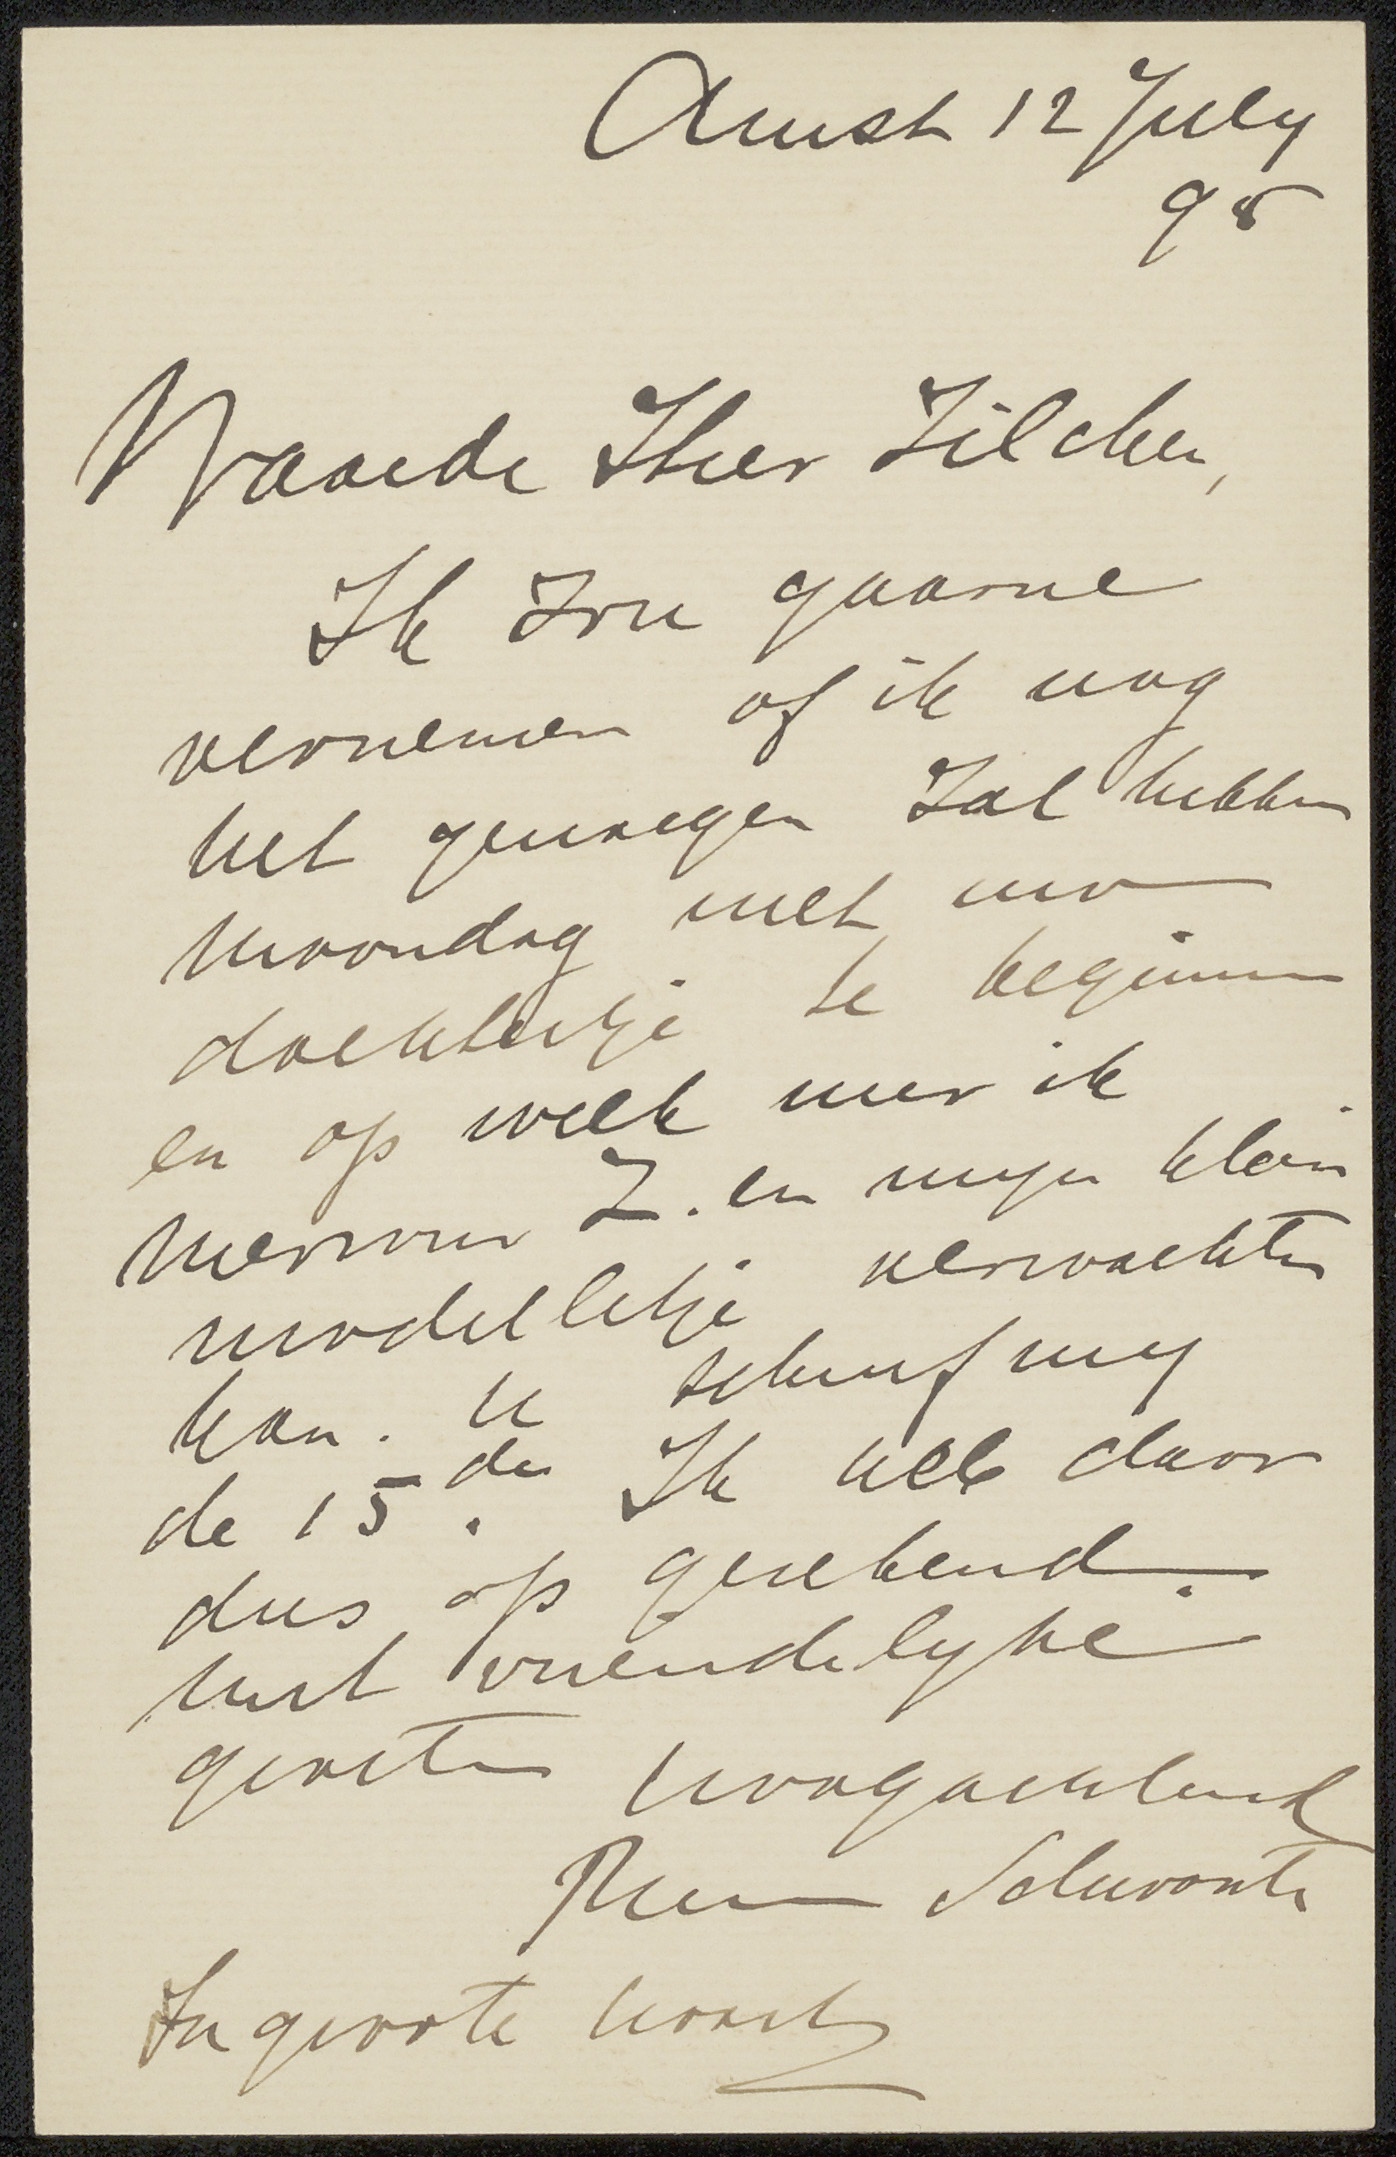 Amst 12 July
98
Waarde Heer Zilcken,
Ik zou gaarne
vernemen of ik nog
het genoegen zal hebben
maandag met uw
dochtertje te beginnen
en op welk uur ik
mevrouw Z. en mijn klein
modelletje verwachten
kan. U schreef mij
de 15den. Ik heb daar
dus op gerekend.
met vriendelyke
groeten hoogachtend
Schwartze
In groote haast